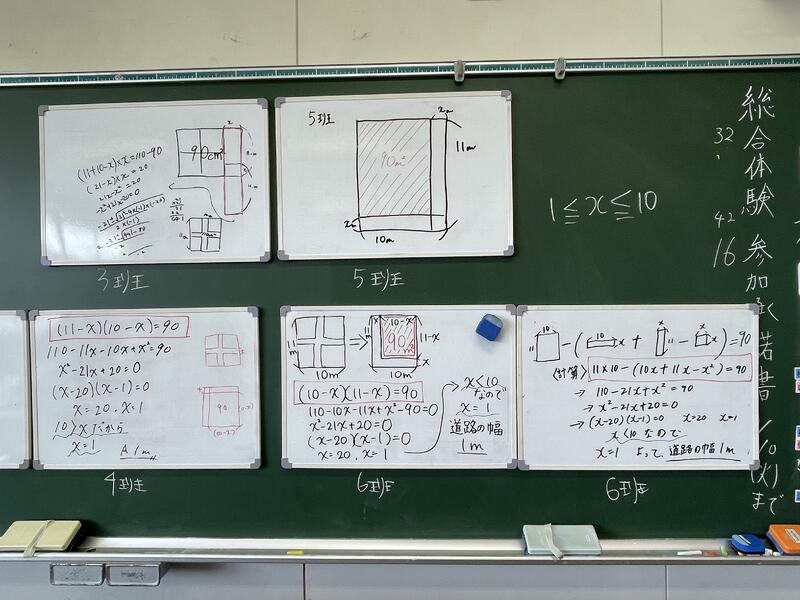 (11+10-x)×x=110-90
(21-x)×x=20
21x-x²=20
-x²+21x-20=0
90cm²
x
11m
3班
5班
90m²
xm
11m
xm
10m
5班
1≦x≦10
総合体験 参加承諾書 10/(火)まで
32
42
16
(11-x)(10-x)=90
110-11x-10x+x²=90
x²-21x+20=0
(x-20)(x-1)=0
x=20, x=1
10>xだから
x=1
A 1m
90
4班
11m
10m
⇒
x
10-x
90
11-x
11m
x
10m
(10-x)(11-x)=90
110-10x-11x+x²-90=0
x²-21x+20=0
(x-20)(x-1)=0
x=20, x=1
x<10
なので
x=1
道路の幅
1m
6班
10
11
-(
10
x
+
x
11
-
x
x
)=90
〈計算〉
11×10-(10x+11x-x²)=90
→ 110-21x+x²=90
→ x²-21x+20=0
→ (x-20)(x-1)=0 x=20 x=1
x<10なので
x=1 よって、道路の幅1m
6班